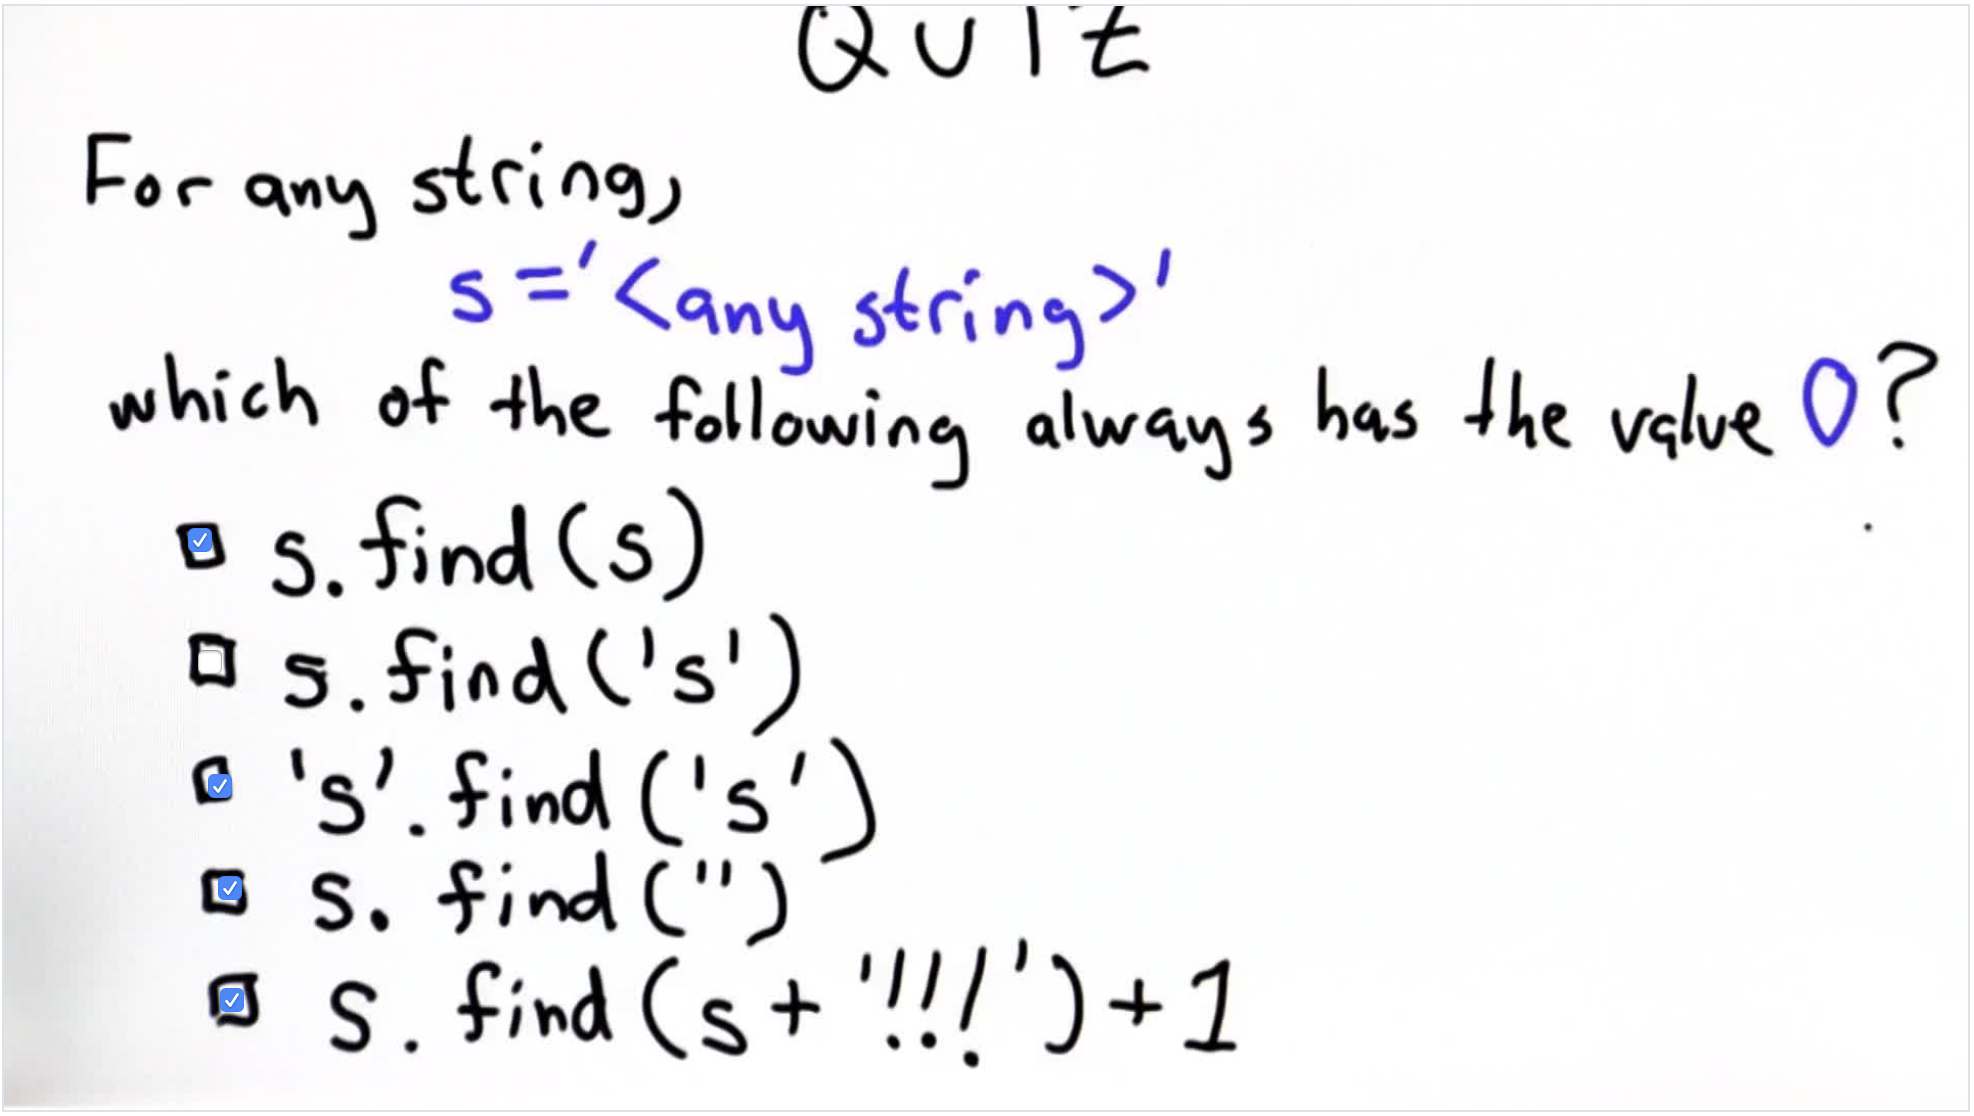 QUIZ
For any string,
s = '<any string>'
which of the following always has the value 0?
s.find(s)
s.find('s')
's'.find('s')
s.find('')
s.find(s + '!!!') + 1